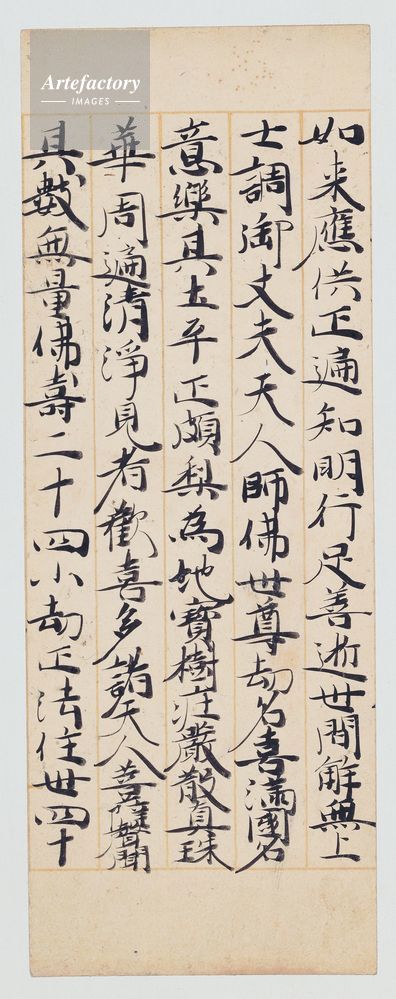 Artefactory
IMAGES
如来應供正遍知明行足善逝世間解無上
士調御丈夫天人師佛世尊劫名喜滿國名
意樂其土平正頗梨為地寶樹莊嚴散真珠
華周遍清淨見者歡喜多諸天人菩薩聲聞
其數無量佛壽二十四小劫正法住世四十